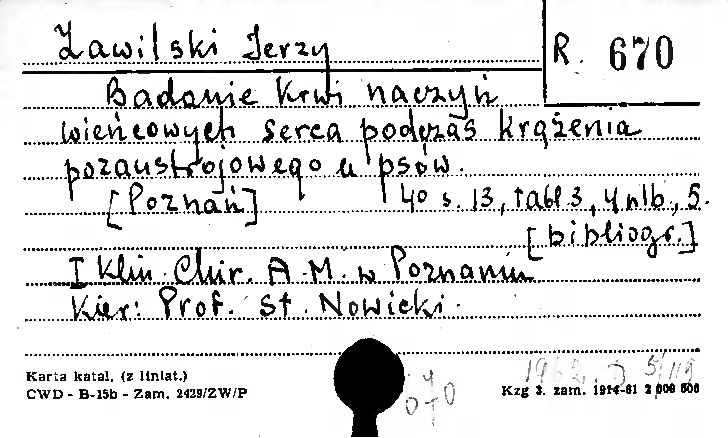 Zawilski Jerzy
R. 670
Badanie krwi naczyń
wieńcowych serca podczas krążenia
pozaustrojowego u psów.
[Poznań] 40 s. 13, tabl 3, 4 nlb., 5.
[bibliogr.]
I Klin. Chir. A.M. w Poznaniu
Kier: Prof. St. Nowicki.
Karta katal. (z liniat.)
CWD - B-15b - Zam. 2429/ZW/P
Kzg 3. zam. 1914-61 2 000 000